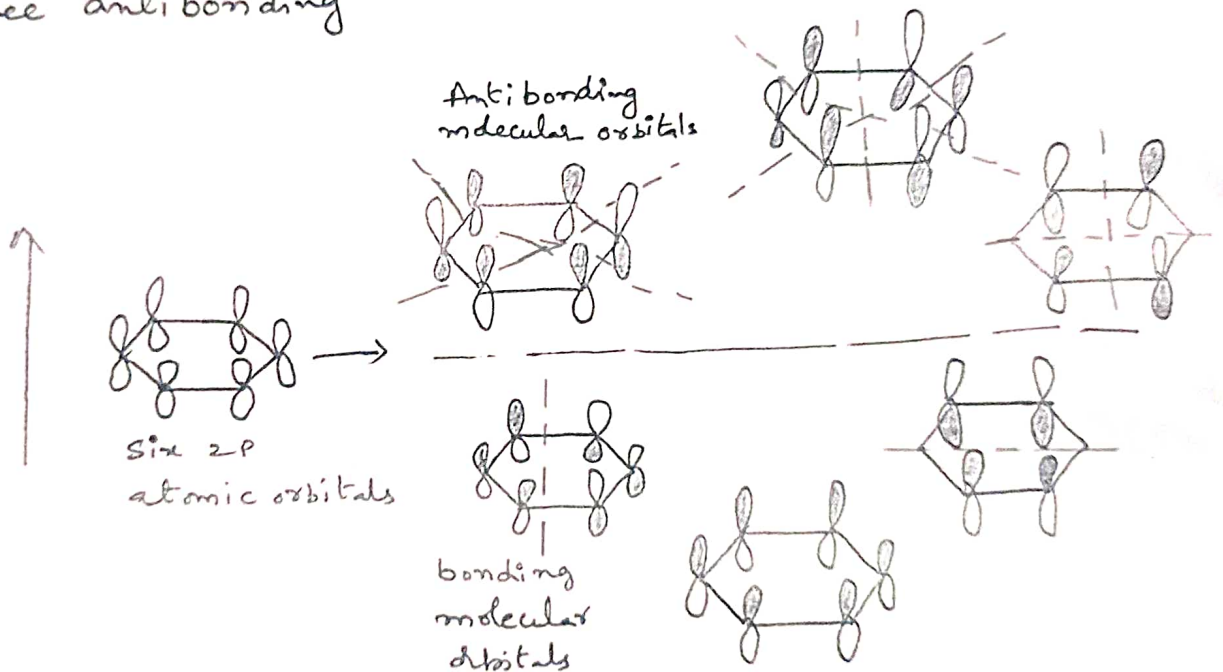 ee antibonding
Antibonding
molecular orbitals
Six 2P
atomic orbitals
bonding
molecular
orbitals